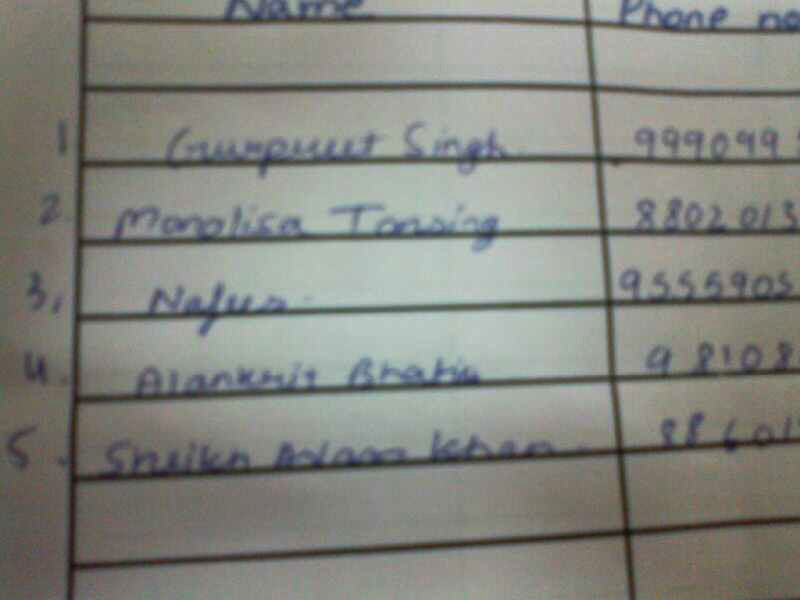 Name Phone no
1 Gurpreet Singh 999099
2. Monalisa Tansing 8802013
3. Nafees 9555905
4. Alankrit Bhatia 98108
5. Sheikh Aslam Khan 88601